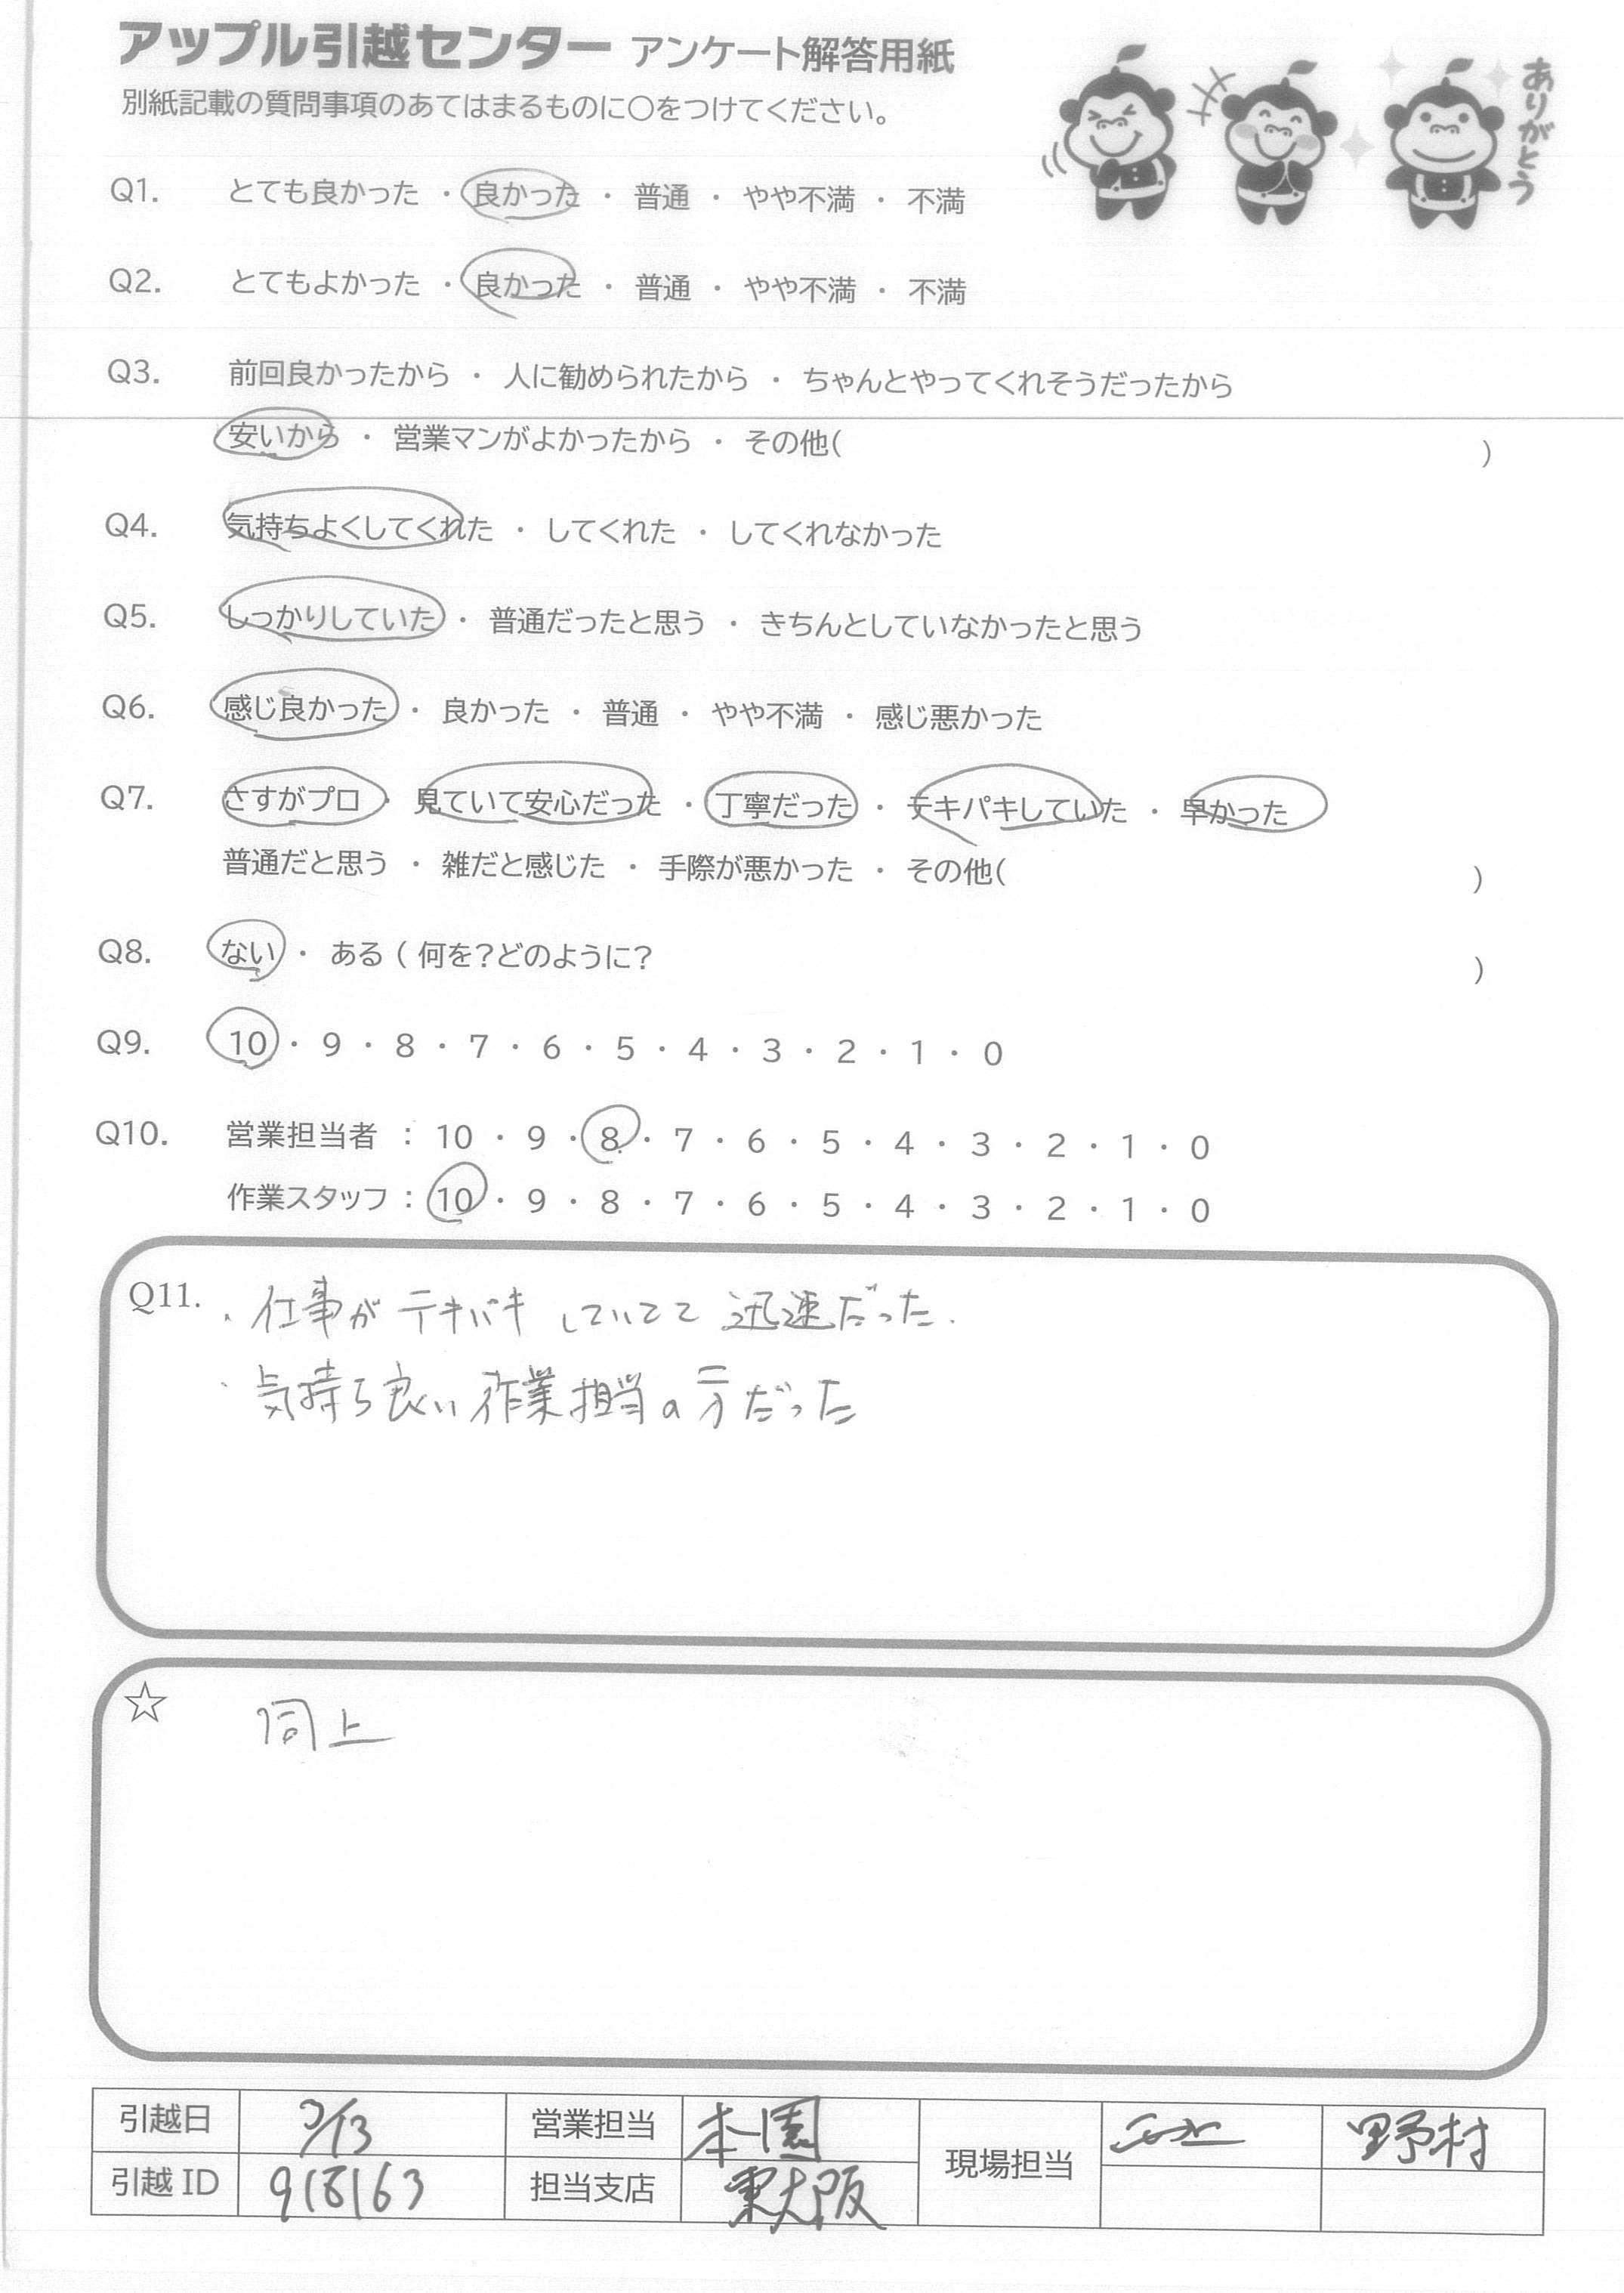 アップル引越センター アンケート解答用紙
別紙記載の質問事項のあてはまるものに○をつけてください。
ありがとう
Q1. とても良かった ・ 良かった ・ 普通 ・ やや不満 ・ 不満
Q2. とてもよかった ・ 良かった ・ 普通 ・ やや不満 ・ 不満
Q3. 前回良かったから ・ 人に勧められたから ・ ちゃんとやってくれそうだったから
安いから ・ 営業マンがよかったから ・ その他( )
Q4. 気持ちよくしてくれた ・ してくれた ・ してくれなかった
Q5. しっかりしていた ・ 普通だったと思う ・ きちんとしていなかったと思う
Q6. 感じ良かった ・ 良かった ・ 普通 ・ やや不満 ・ 感じ悪かった
Q7. さすがプロ ・ 見ていて安心だった ・ 丁寧だった ・ テキパキしていた ・ 早かった
普通だと思う ・ 雑だと感じた ・ 手際が悪かった ・ その他( )
Q8. ない ・ ある ( 何を?どのように? )
Q9. 10 ・ 9 ・ 8 ・ 7 ・ 6 ・ 5 ・ 4 ・ 3 ・ 2 ・ 1 ・ 0
Q10. 営業担当者 : 10 ・ 9 ・ 8 ・ 7 ・ 6 ・ 5 ・ 4 ・ 3 ・ 2 ・ 1 ・ 0
作業スタッフ : 10 ・ 9 ・ 8 ・ 7 ・ 6 ・ 5 ・ 4 ・ 3 ・ 2 ・ 1 ・ 0
Q11. ・仕事がテキパキしていてて迅速だった.
・気持ち良い作業担当の方だった
☆ 同上
引越日 営業担当 本園 現場担当 野村
引越ID 918163 担当支店 東大阪